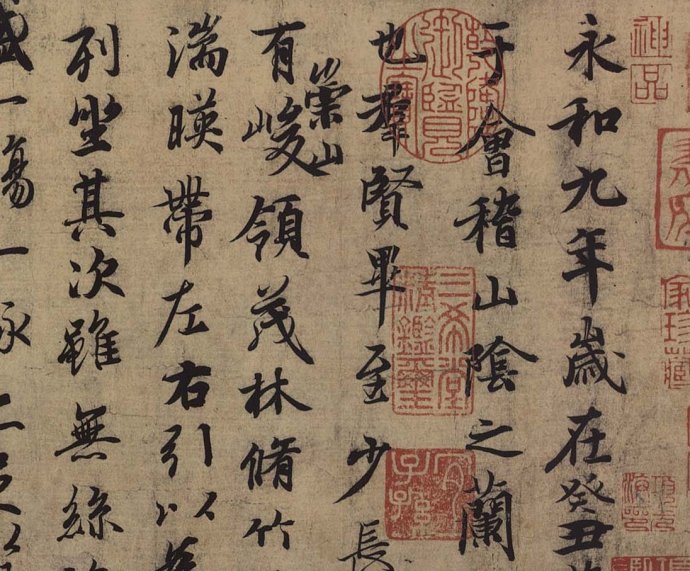 永和九年歲在癸丑
于會稽山陰之蘭
也羣賢畢至少長
有崇山峻領茂林脩竹
湍暎帶左右引以
列坐其次雖無絲
一觴一詠
神品
三希堂精鑑璽
宜子孫